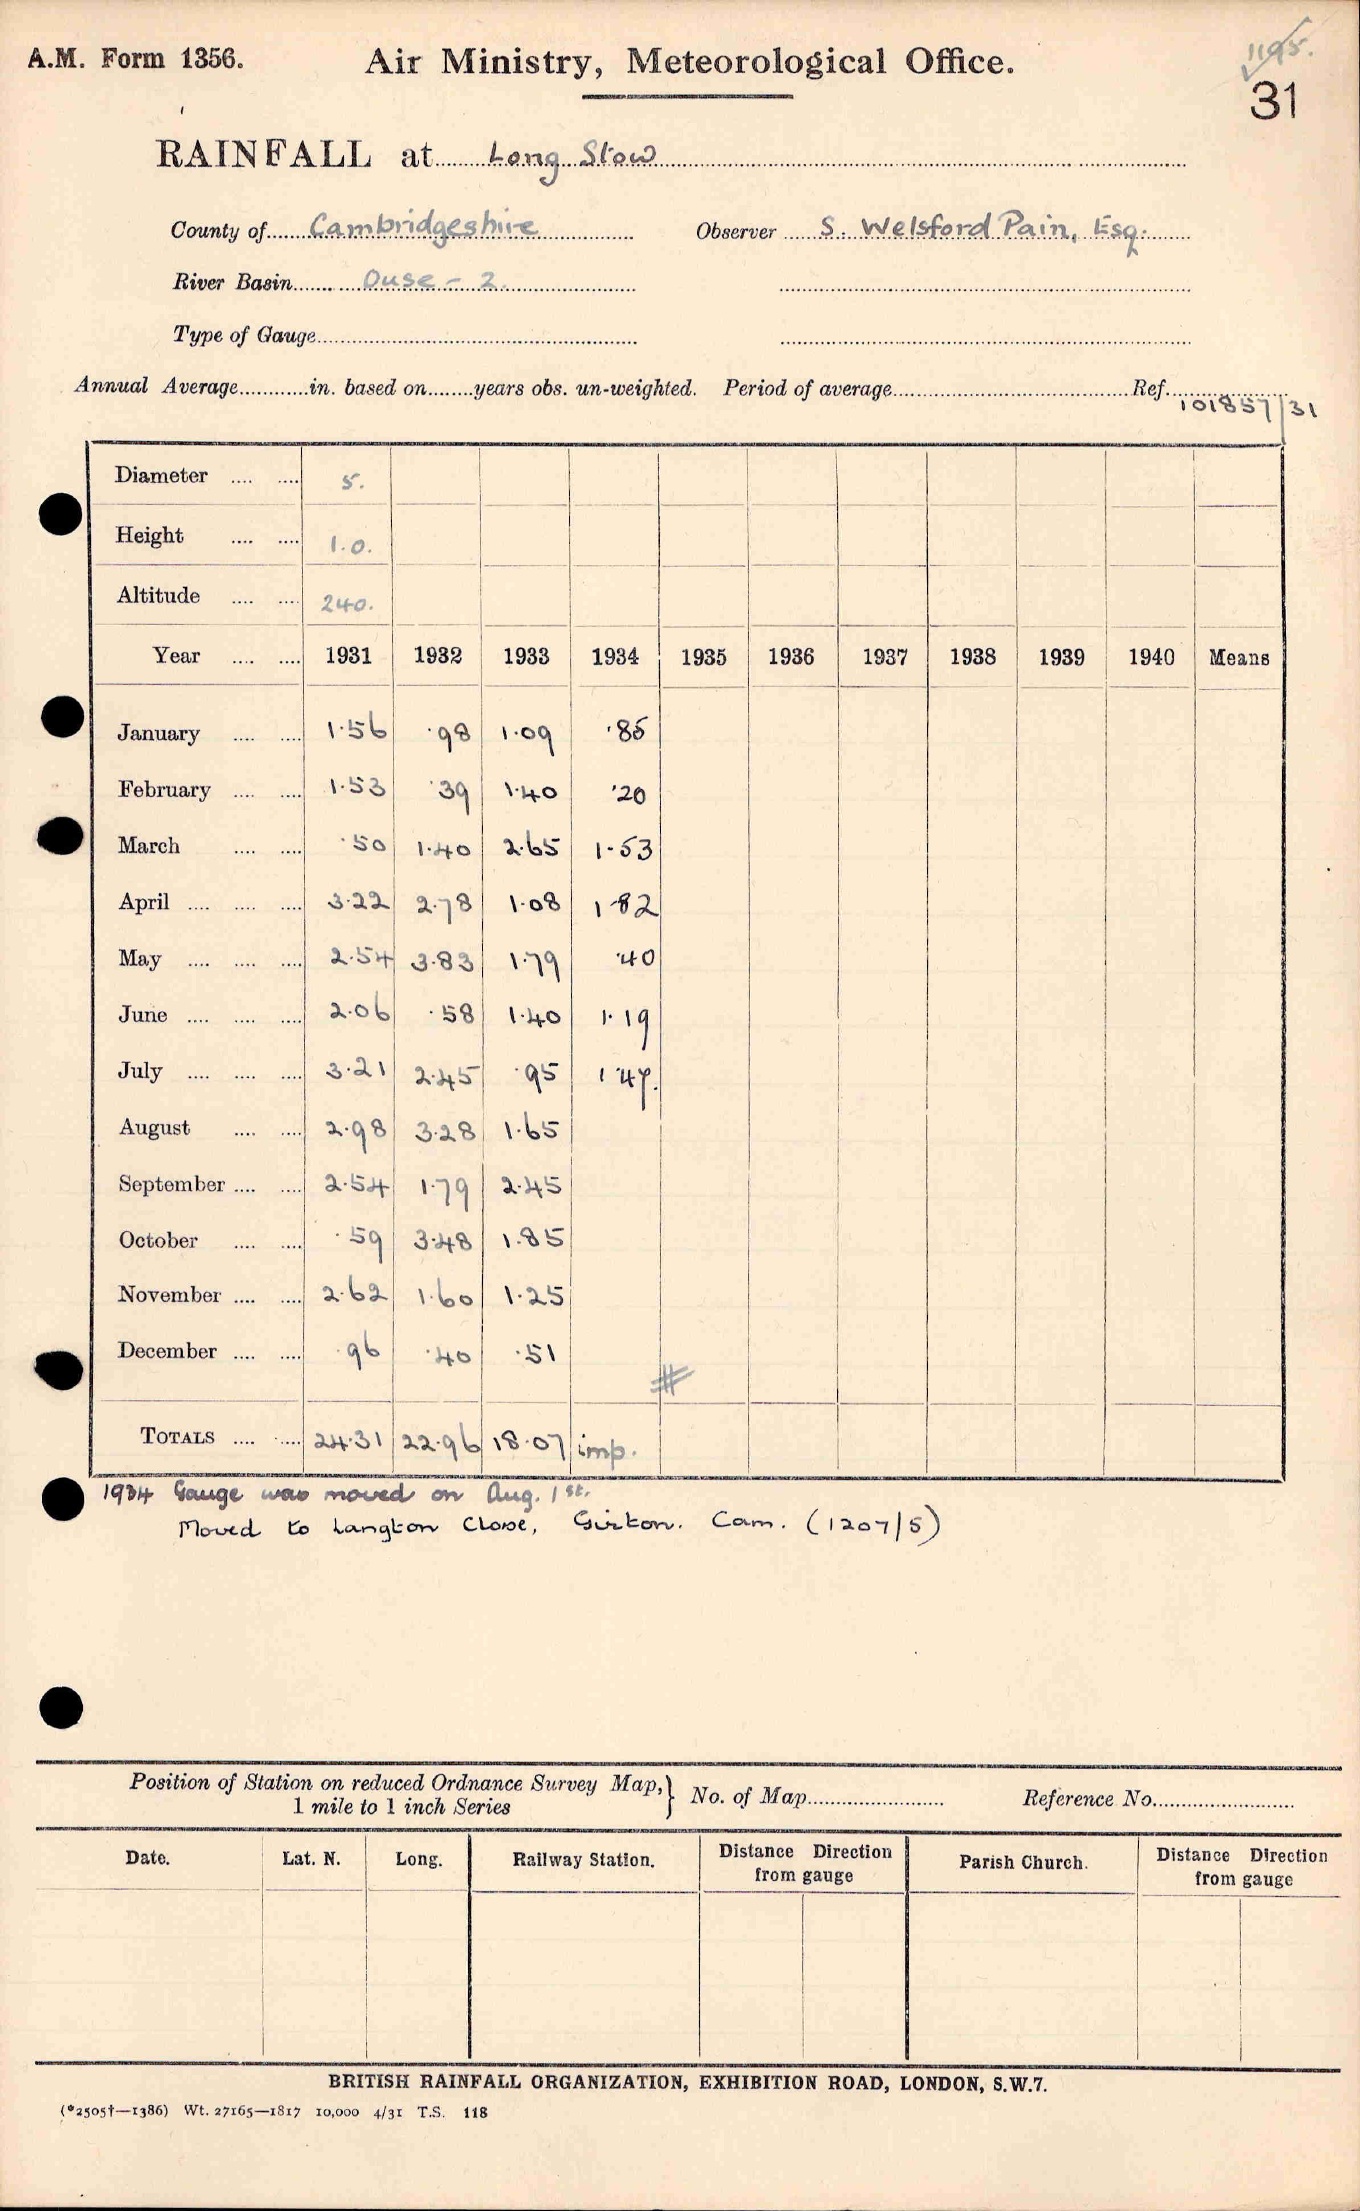 A.M. Form 1356.
Air Ministry, Meteorological Office.
1195.
31
RAINFALL at Long Stow
County of Cambridgeshire Observer S. Welsford Pain, Esq.
River Basin Ouse - 2.
Type of Gauge
Annual Average in. based on years obs. un-weighted. Period of average Ref. 101857/31
Diameter .... .... 5.
Height .... .... 1.0.
Altitude .... .... 240.
Year .... .... 1931 1932 1933 1934 1935 1936 1937 1938 1939 1940 Means
January .... .... 1.56 .98 1.09 .85
February .... .... 1.53 .39 1.40 .20
March .... .... .50 1.40 2.65 1.53
April .... .... .... 3.22 2.78 1.08 1.82
May .... .... .... 2.54 3.83 1.79 .40
June .... .... .... 2.06 .58 1.40 1.19
July .... .... .... 3.21 2.45 .95 1.47.
August .... .... 2.98 3.28 1.65
September .... .... 2.54 1.79 2.45
October .... .... .59 3.48 1.85
November .... .... 2.62 1.60 1.25
December .... .... .96 .40 .51
#
TOTALS .... .... 24.31 22.96 18.07 imp.
1934 Gauge was moved on Aug. 1st.
Moved to Langton Close, Girton. Cam. (1207/5)
Position of Station on reduced Ordnance Survey Map, } No. of Map Reference No.
1 mile to 1 inch Series
Date. Lat. N. Long. Railway Station. Distance Direction from gauge Parish Church. Distance Direction from gauge
BRITISH RAINFALL ORGANIZATION, EXHIBITION ROAD, LONDON, S.W.7.
(*2505†—1386) Wt. 27165—1817 10,000 4/31 T.S. 118